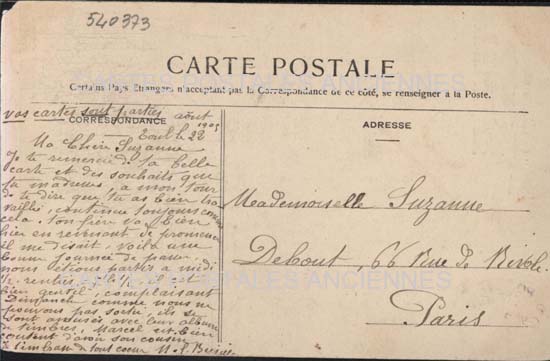 540373
CARTE POSTALE
Certains Pays Etrangers n'acceptant pas la Correspondance de ce côté, se renseigner à la Poste.
CARTES POSTALES ANCIENNES
vos cartes sont parties
CORRESPONDANCE
août
1905
Toul le 22
Ma Chère Suzanne
Je te remercie de ta belle
carte et des souhaits que
tu m'adresses, à mon tour
de te dire que tu as bien tra
vaillé, continue toujours comme
cela, ton
hier en revenant de promenade
il me disait, voilà une
bonne journée de passée
nous étions partis à midi
gentil, complaisant
Dimanche comme nous ne
pouvons pas sortir, ils se
sont amusés avec leur album
de timbres, Marcel est bien
content d'avoir son cousin
t'embrasse de tout coeur
ADRESSE
Mademoiselle Suzanne
Debout, 66 Rue de Rivoli
Paris
CARTES POSTALES ANCIENNES